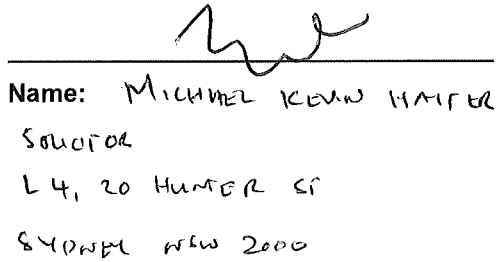 Name: MICHAEL KEVIN HALTER
SOLICITOR
L 4, 20 HUNTER ST
SYDNEY NSW 2000